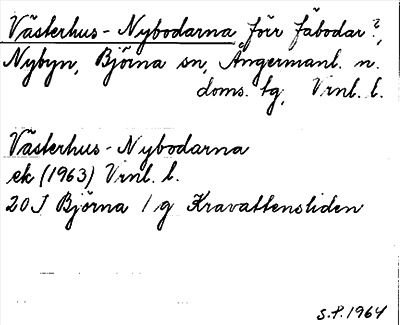 Västerhus-Nybodarna förr fäbodar?,
Nybyn, Björna sn, Ångermanl. n.
doms. tg, Vrnl. l.
Västerhus-Nybodarna
ek (1963) Vrnl. l.
20J Björna 1g Kravattensliden
S.P. 1964